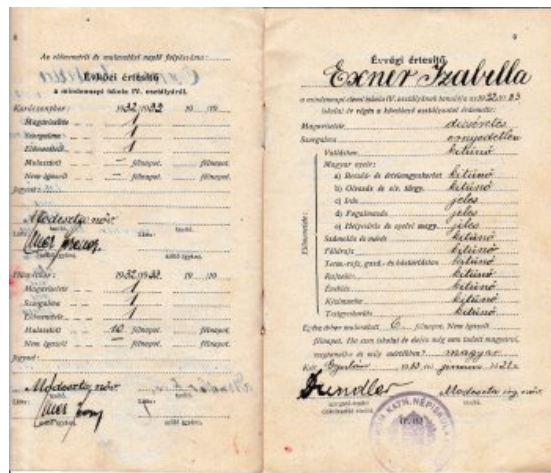 8
Az előmeneteli és mulasztási napló folyószáma:
Évközi értesítő
a mindennapi iskola IV. osztályáról.
Karácsonykor: 1932/1933 19 /19
Magaviselete 1
Szorgalma 1
Előmenetele 1
Mulasztott — félnapot. félnapot.
Nem igazolt — félnapot. félnapot.
Jegyzet:
Modeszta nőv.
tanító. tanító.
Látta: Látta:
Exner Ferenc
szülő vagy gyám. szülő vagy gyám.
1932/1933 19 /19
Magaviselete 1
Szorgalma 1
Előmenetele 1
Mulasztott 10 félnapot. félnapot.
Nem igazolt — félnapot. félnapot.
Jegyzet:
Modeszta nőv.
tanító. tanító.
Látta: Látta:
Exner
szülő vagy gyám.
9
Évvégi értesítő
Exner Izabella
a mindennapi elemi iskola IV. osztályának tanulója az 1932/33
iskolai év végén a következő osztályzatot érdemelte:
Magaviselete dicséretes
Szorgalma ernyedetlen
Előmenetele:
Vallástan kitünő
Magyar nyelv:
a) Beszéd- és értelemgyakorlat kitünő
b) Olvasás és olv. tárgy. kitünő
c) Írás jeles
d) Fogalmazás jeles
e) Helyesírás és nyelvi magy. jeles
Számolás és mérés kitünő
Földrajz kitünő
Term.-rajz, gazd.- és háztartástan kitünő
Rajzolás kitünő
Éneklés kitünő
Kézimunka kitünő
Testgyakorlás kitünő
Egész évben mulasztott 6 félnapot. Nem igazolt
félnapot. Ha nem iskolai év elején még nem tudott magyarul,
megtanulta-e és mily mértékben? magyar
Kelt 1933. évi junius hó 21 én
Dundler
Modeszta
tanító.
KATH. NÉPISKOLA